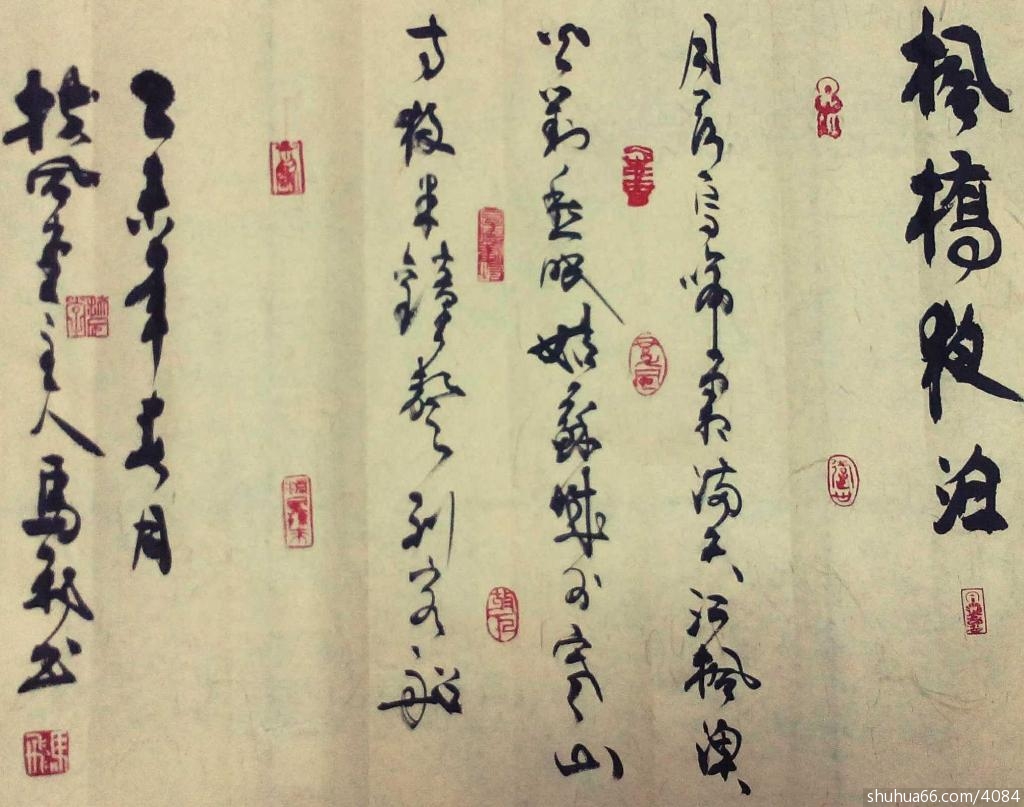 楓橋夜泊
月落烏啼霜滿天江楓漁
火對愁眠姑蘇城外寒山
寺夜半鐘聲到客船
乙未年春月
扶風堂主人馬飛书
馬飛
shuhua66.com/4084